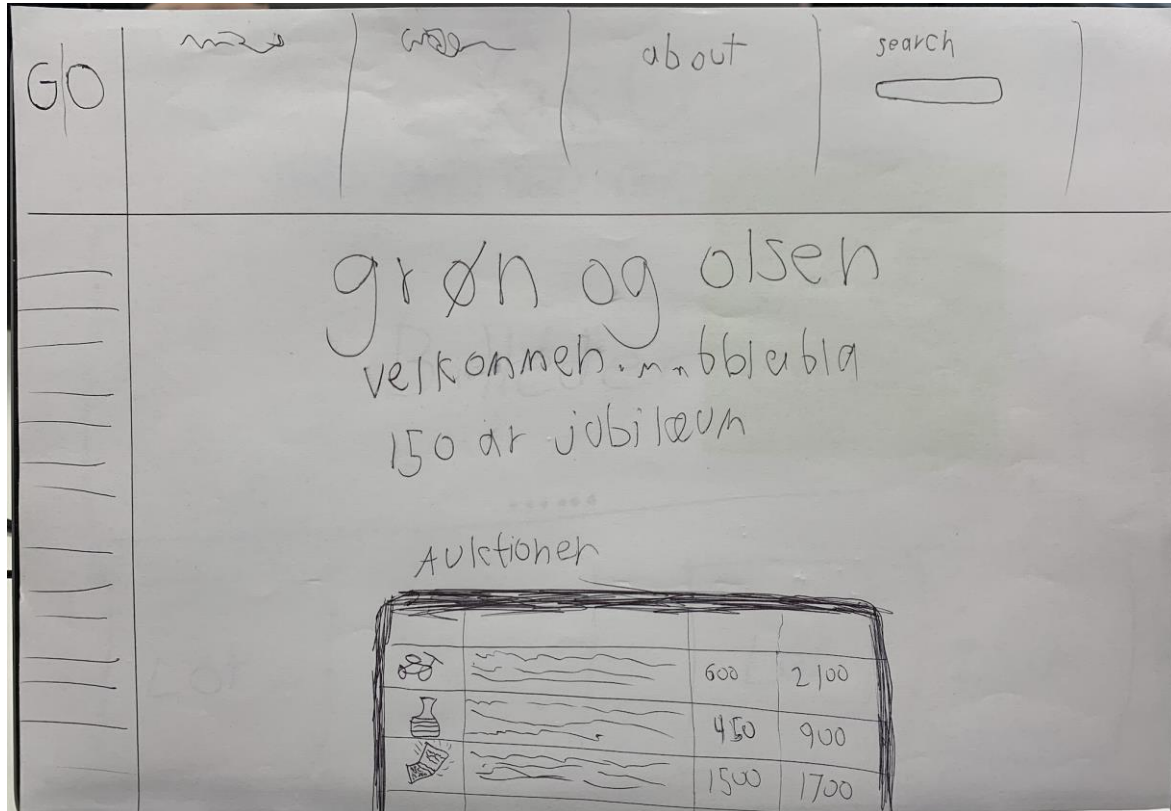 G|O
about
search
grøn og olsen
velkommen. bblabla
150 år jubilæum
Auktioner
600 2100
450 900
1500 1700